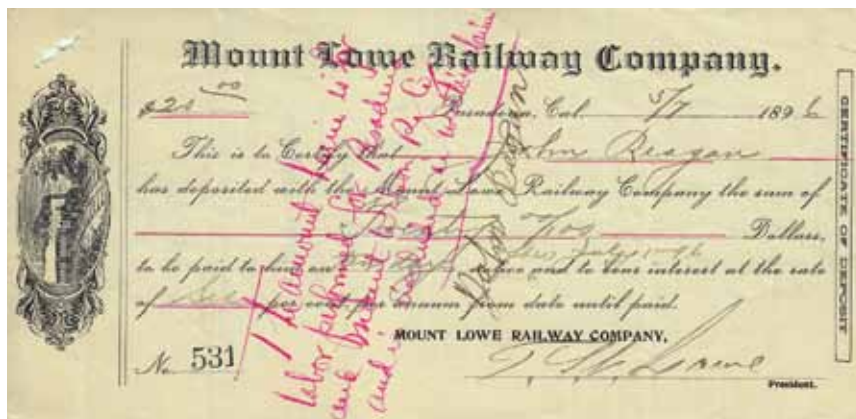 Mount Lowe Railway Company.
$20 00
Pasadena, Cal. 5/7 1896
This is to Certify that John Reagan
has deposited with the Mount Lowe Railway Company the sum of
Dollars,
to be paid to him on notice and to bear interest at the rate
of Six per cent. per annum from date until paid.
MOUNT LOWE RAILWAY COMPANY,
No. 531
President.
CERTIFICATE OF DEPOSIT
The amount herein is for
labor performed for Pasadena
and Mount Ry Co
and is
John Reagan